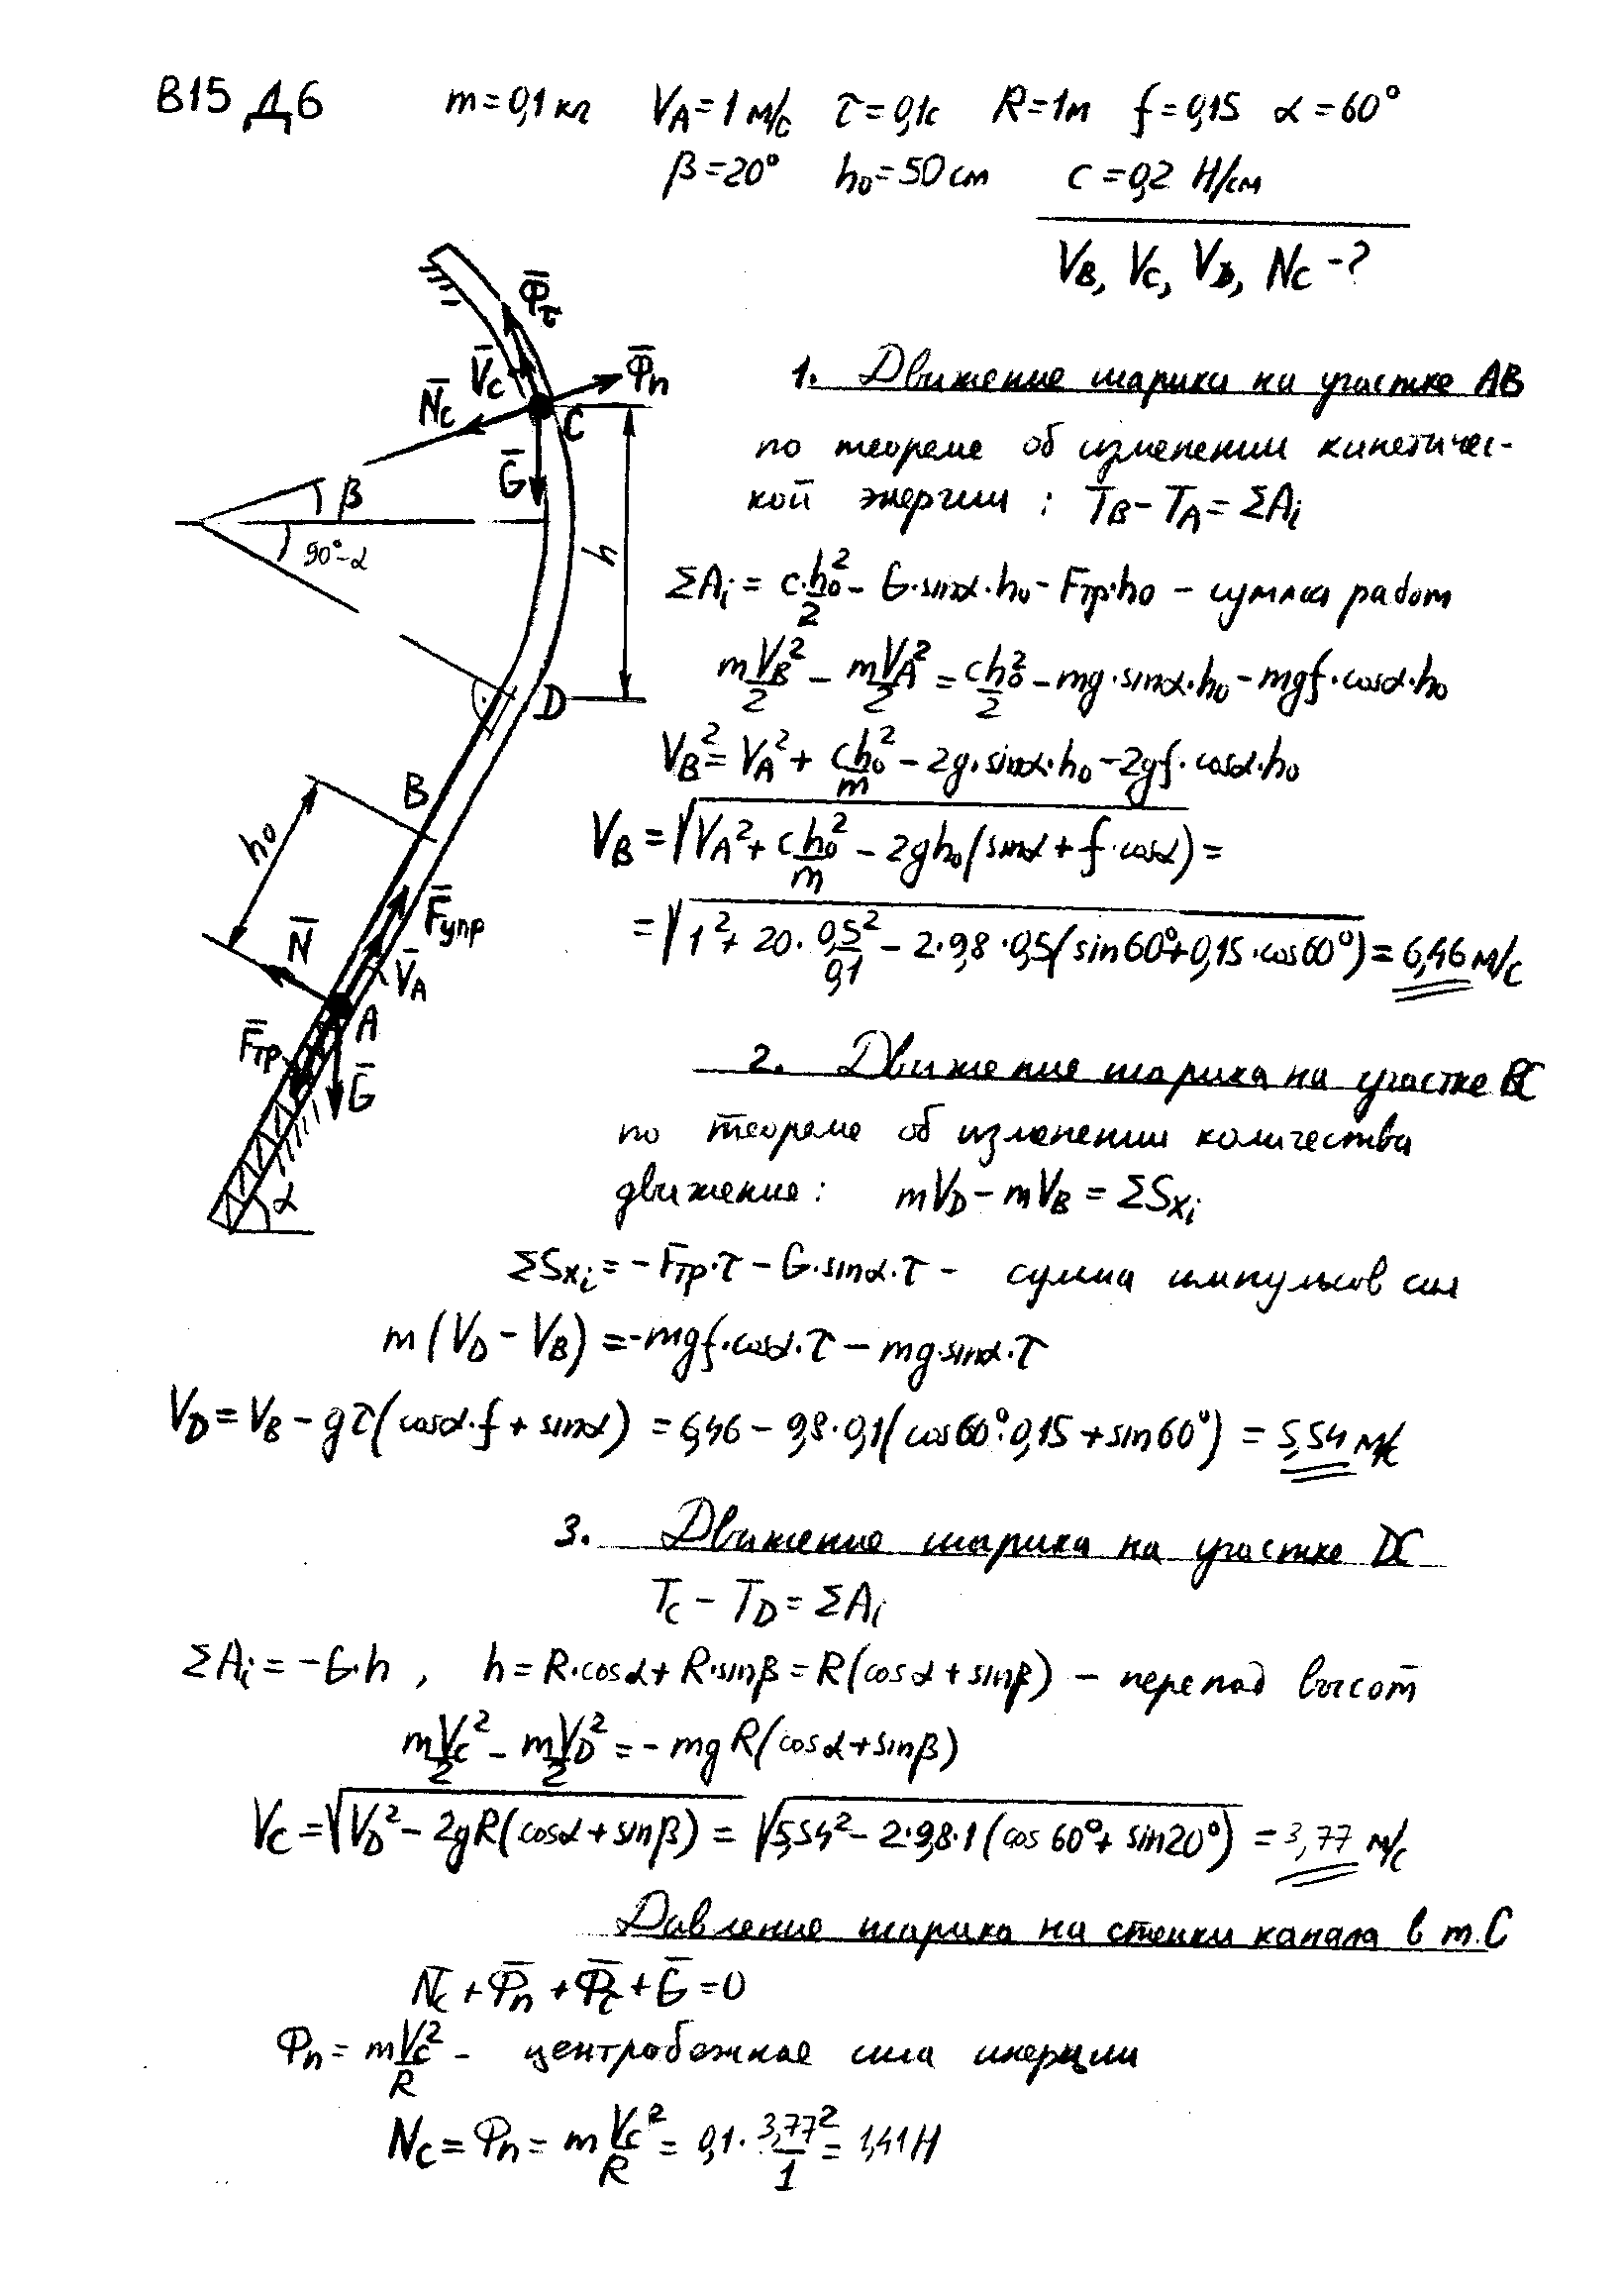 В15 Д6 m=0,1 кг V_A=1 м/с τ=0,1с R=1м f=0,15 α=60°
β=20° h₀=50 cm c=0,2 Н/см
V_B, V_C, V_D, N_C -?
Φ̄_τ
V̄_C Φ̄_n
N̄_C
C
Ḡ
β
90°-α
h
D
B
h₀
F̄_упр
N̄
V̄_A
A
F̄_тр
Ḡ
α
1. Движение шарика на участке AB
по теореме об изменении кинетичес-
кой энергии : T_B - T_A = ΣA_i
ΣA_i = c·h₀²/2 - G·sinα·h₀ - F_тр·h₀ - сумма работ
mV_B²/2 - mV_A²/2 = ch₀²/2 - mg·sinα·h₀ - mgf·cosα·h₀
V_B² = V_A² + ch₀²/m - 2g·sinα·h₀ - 2gf·cosα·h₀
V_B = √(V_A² + ch₀²/m - 2gh₀(sinα + f·cosα)) =
= √(1² + 20·0,5²/0,1 - 2·9,8·0,5(sin60°+0,15·cos60°)) = 6,46 м/с
2. Движение шарика на участке BC
по теореме об изменении количества
движения: mV_D - mV_B = ΣS_xi
ΣS_xi = -F_тр·τ - G·sinα·τ - сумма импульсов сил
m(V_D - V_B) = -mgf·cosα·τ - mg·sinα·τ
V_D = V_B - gτ(cosα·f + sinα) = 6,46 - 9,8·0,1(cos60°·0,15 + sin60°) = 5,54 м/с
3. Движение шарика на участке DC
T_C - T_D = ΣA_i
ΣA_i = -G·h , h = R·cosα + R·sinβ = R(cosα + sinβ) - перепад высот
mV_C²/2 - mV_D²/2 = -mgR(cosα+sinβ)
V_C = √(V_D² - 2gR(cosα + sinβ)) = √(5,54² - 2·9,8·1(cos60° + sin20°)) = 3,77 м/с
Давление шарика на стенки канала в т.C
N̄_C + Φ̄_n + Φ̄_τ + Ḡ = 0
Φ_n = mV_C²/R - центробежная сила инерции
N_C = Φ_n = m V_C²/R = 0,1·3,77²/1 = 1,41 Н